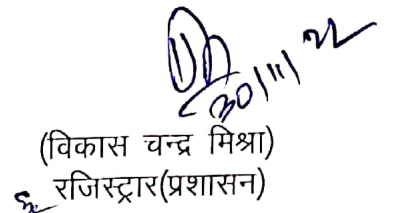 30/11/22
(विकास चन्द्र मिश्रा)
रजिस्ट्रार(प्रशासन)